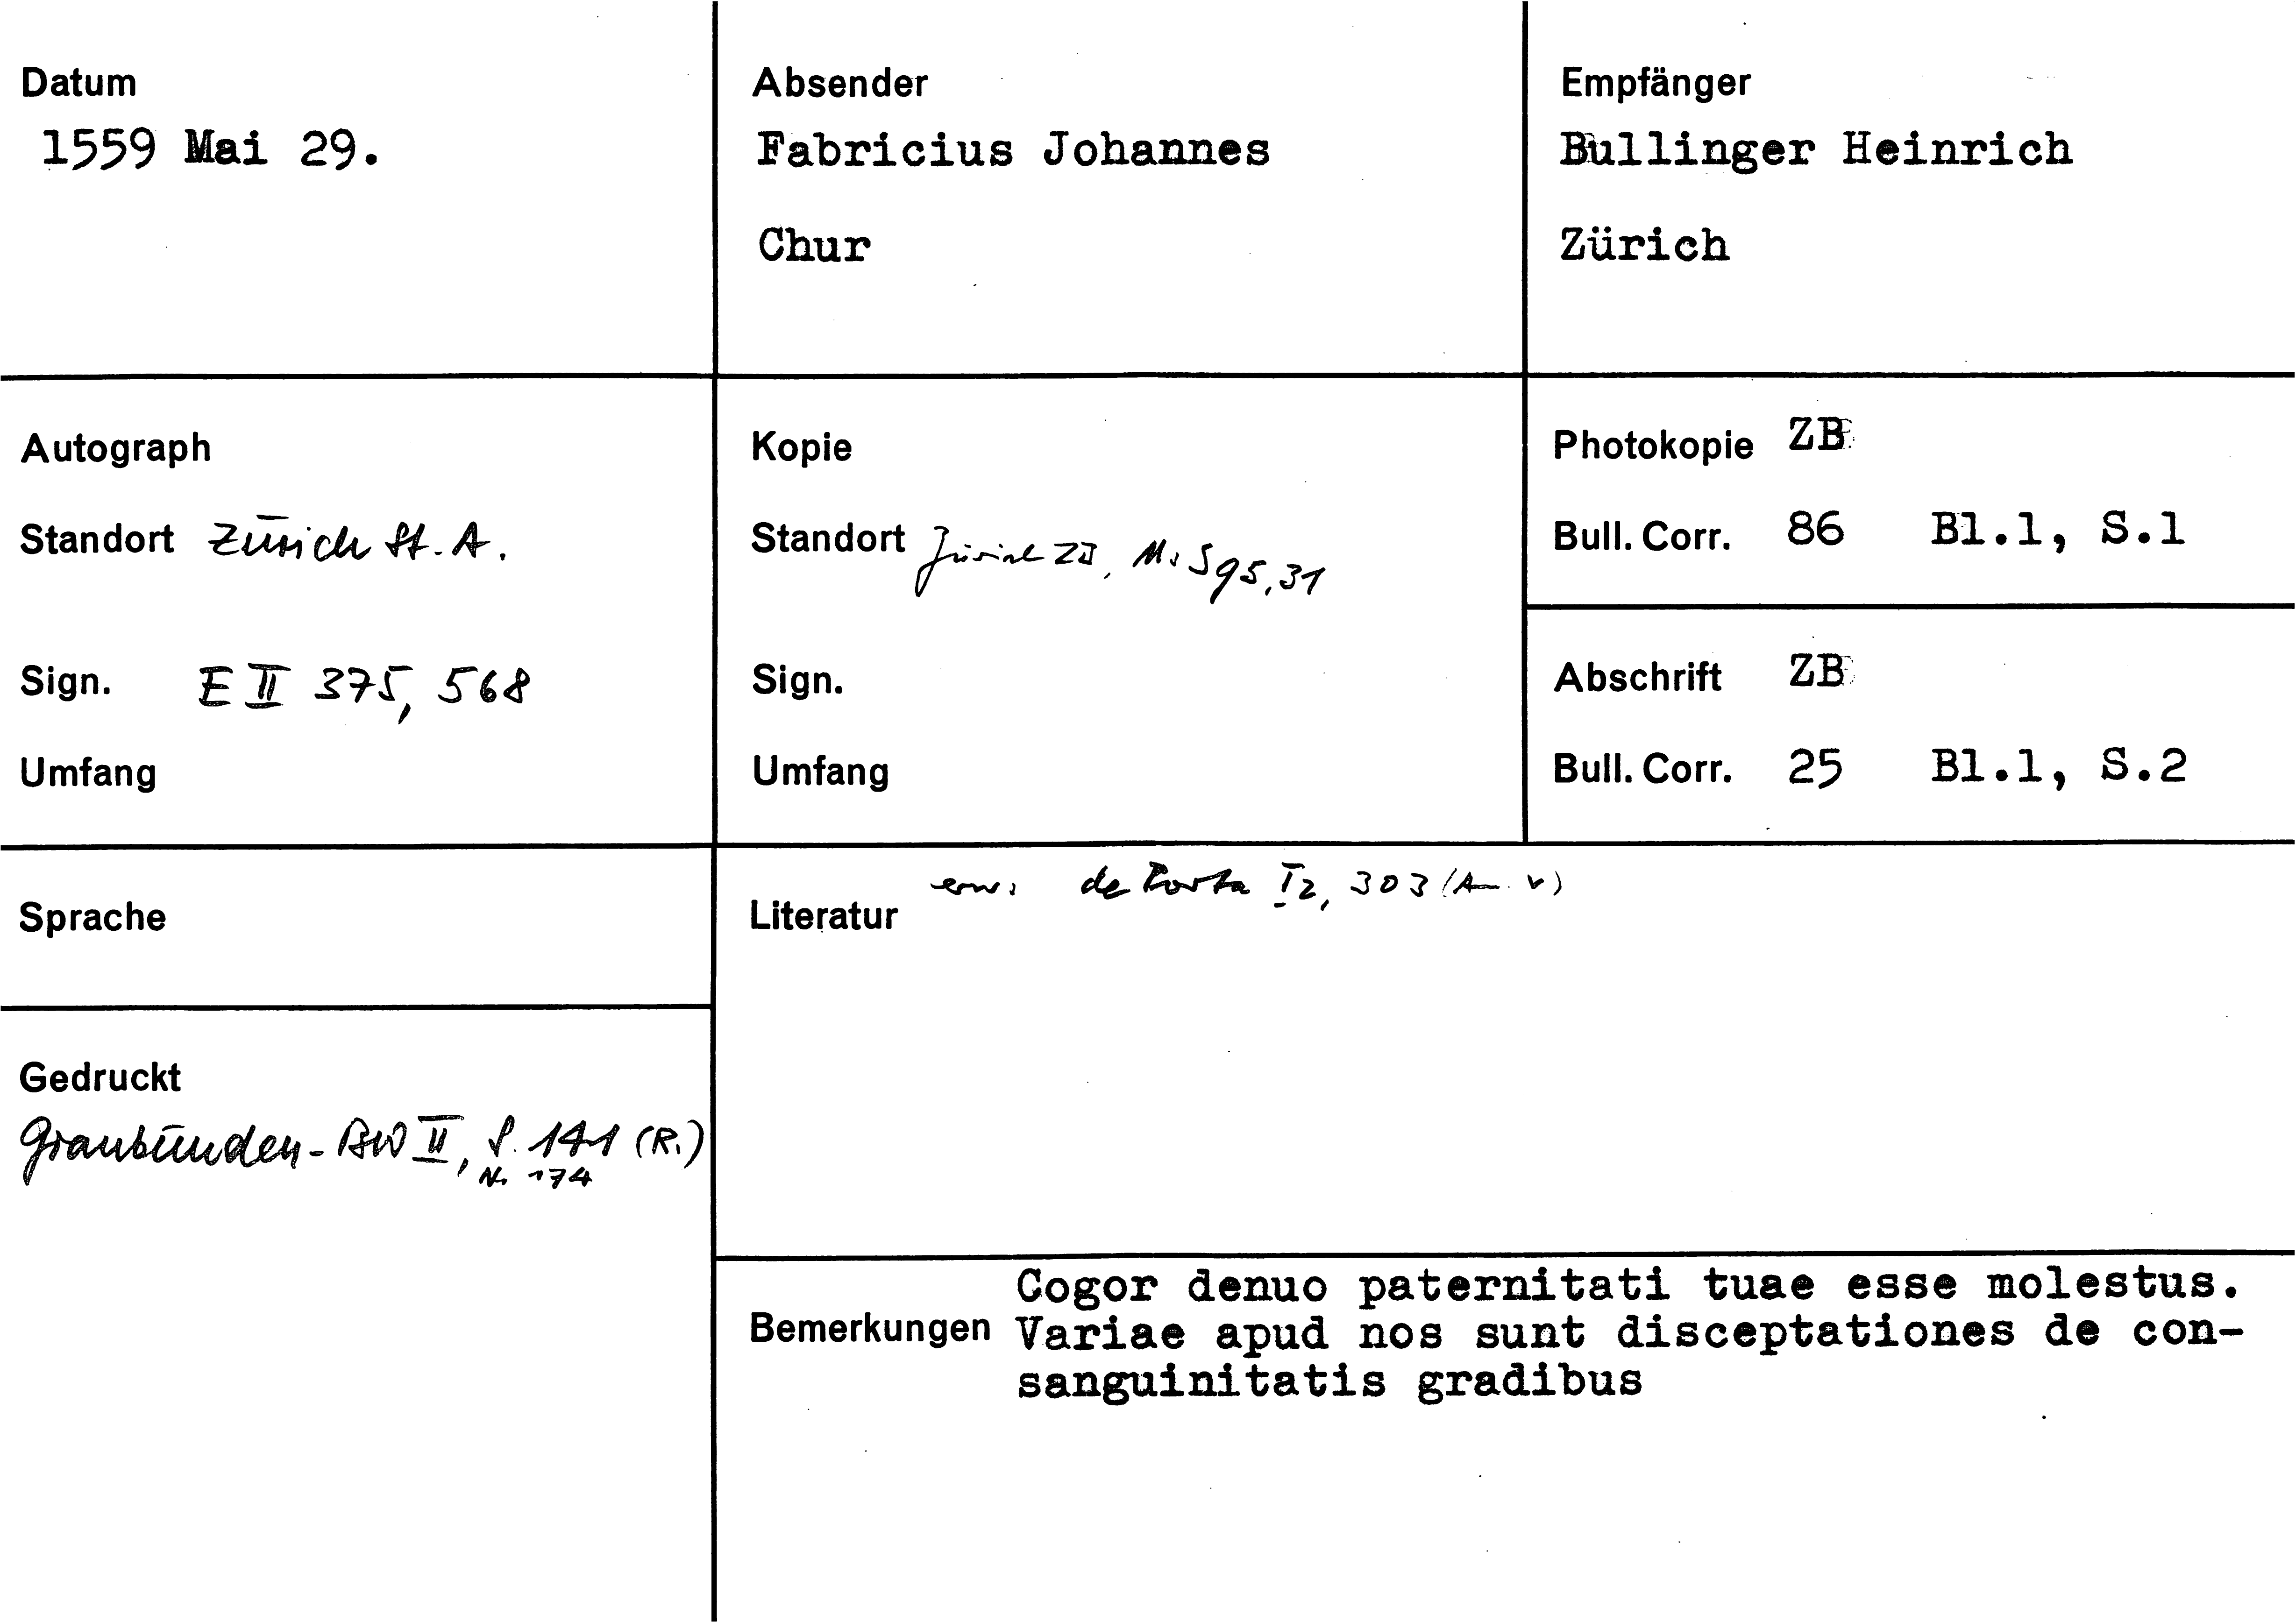 Datum
1559 Mai 29.
Absender
Fabricius Johannes
Chur
Empfänger
Bullinger Heinrich
Zürich
Autograph
Standort Zürich St. A.
Sign. E II 375, 568
Umfang
Kopie
Standort Zürich ZB, Ms S 95, 31
Sign.
Umfang
Photokopie ZB
Bull. Corr. 86 Bl.1, S.1
Abschrift ZB
Bull. Corr. 25 Bl.1, S.2
Sprache
Gedruckt
Graubünden-BW II, S. 141 (R.)
Nr. 174
Literatur erw. de Porta I 2, 303
Bemerkungen
Cogor denuo paternitati tuae esse molestus.
Variae apud nos sunt disceptationes de con-
sanguinitatis gradibus